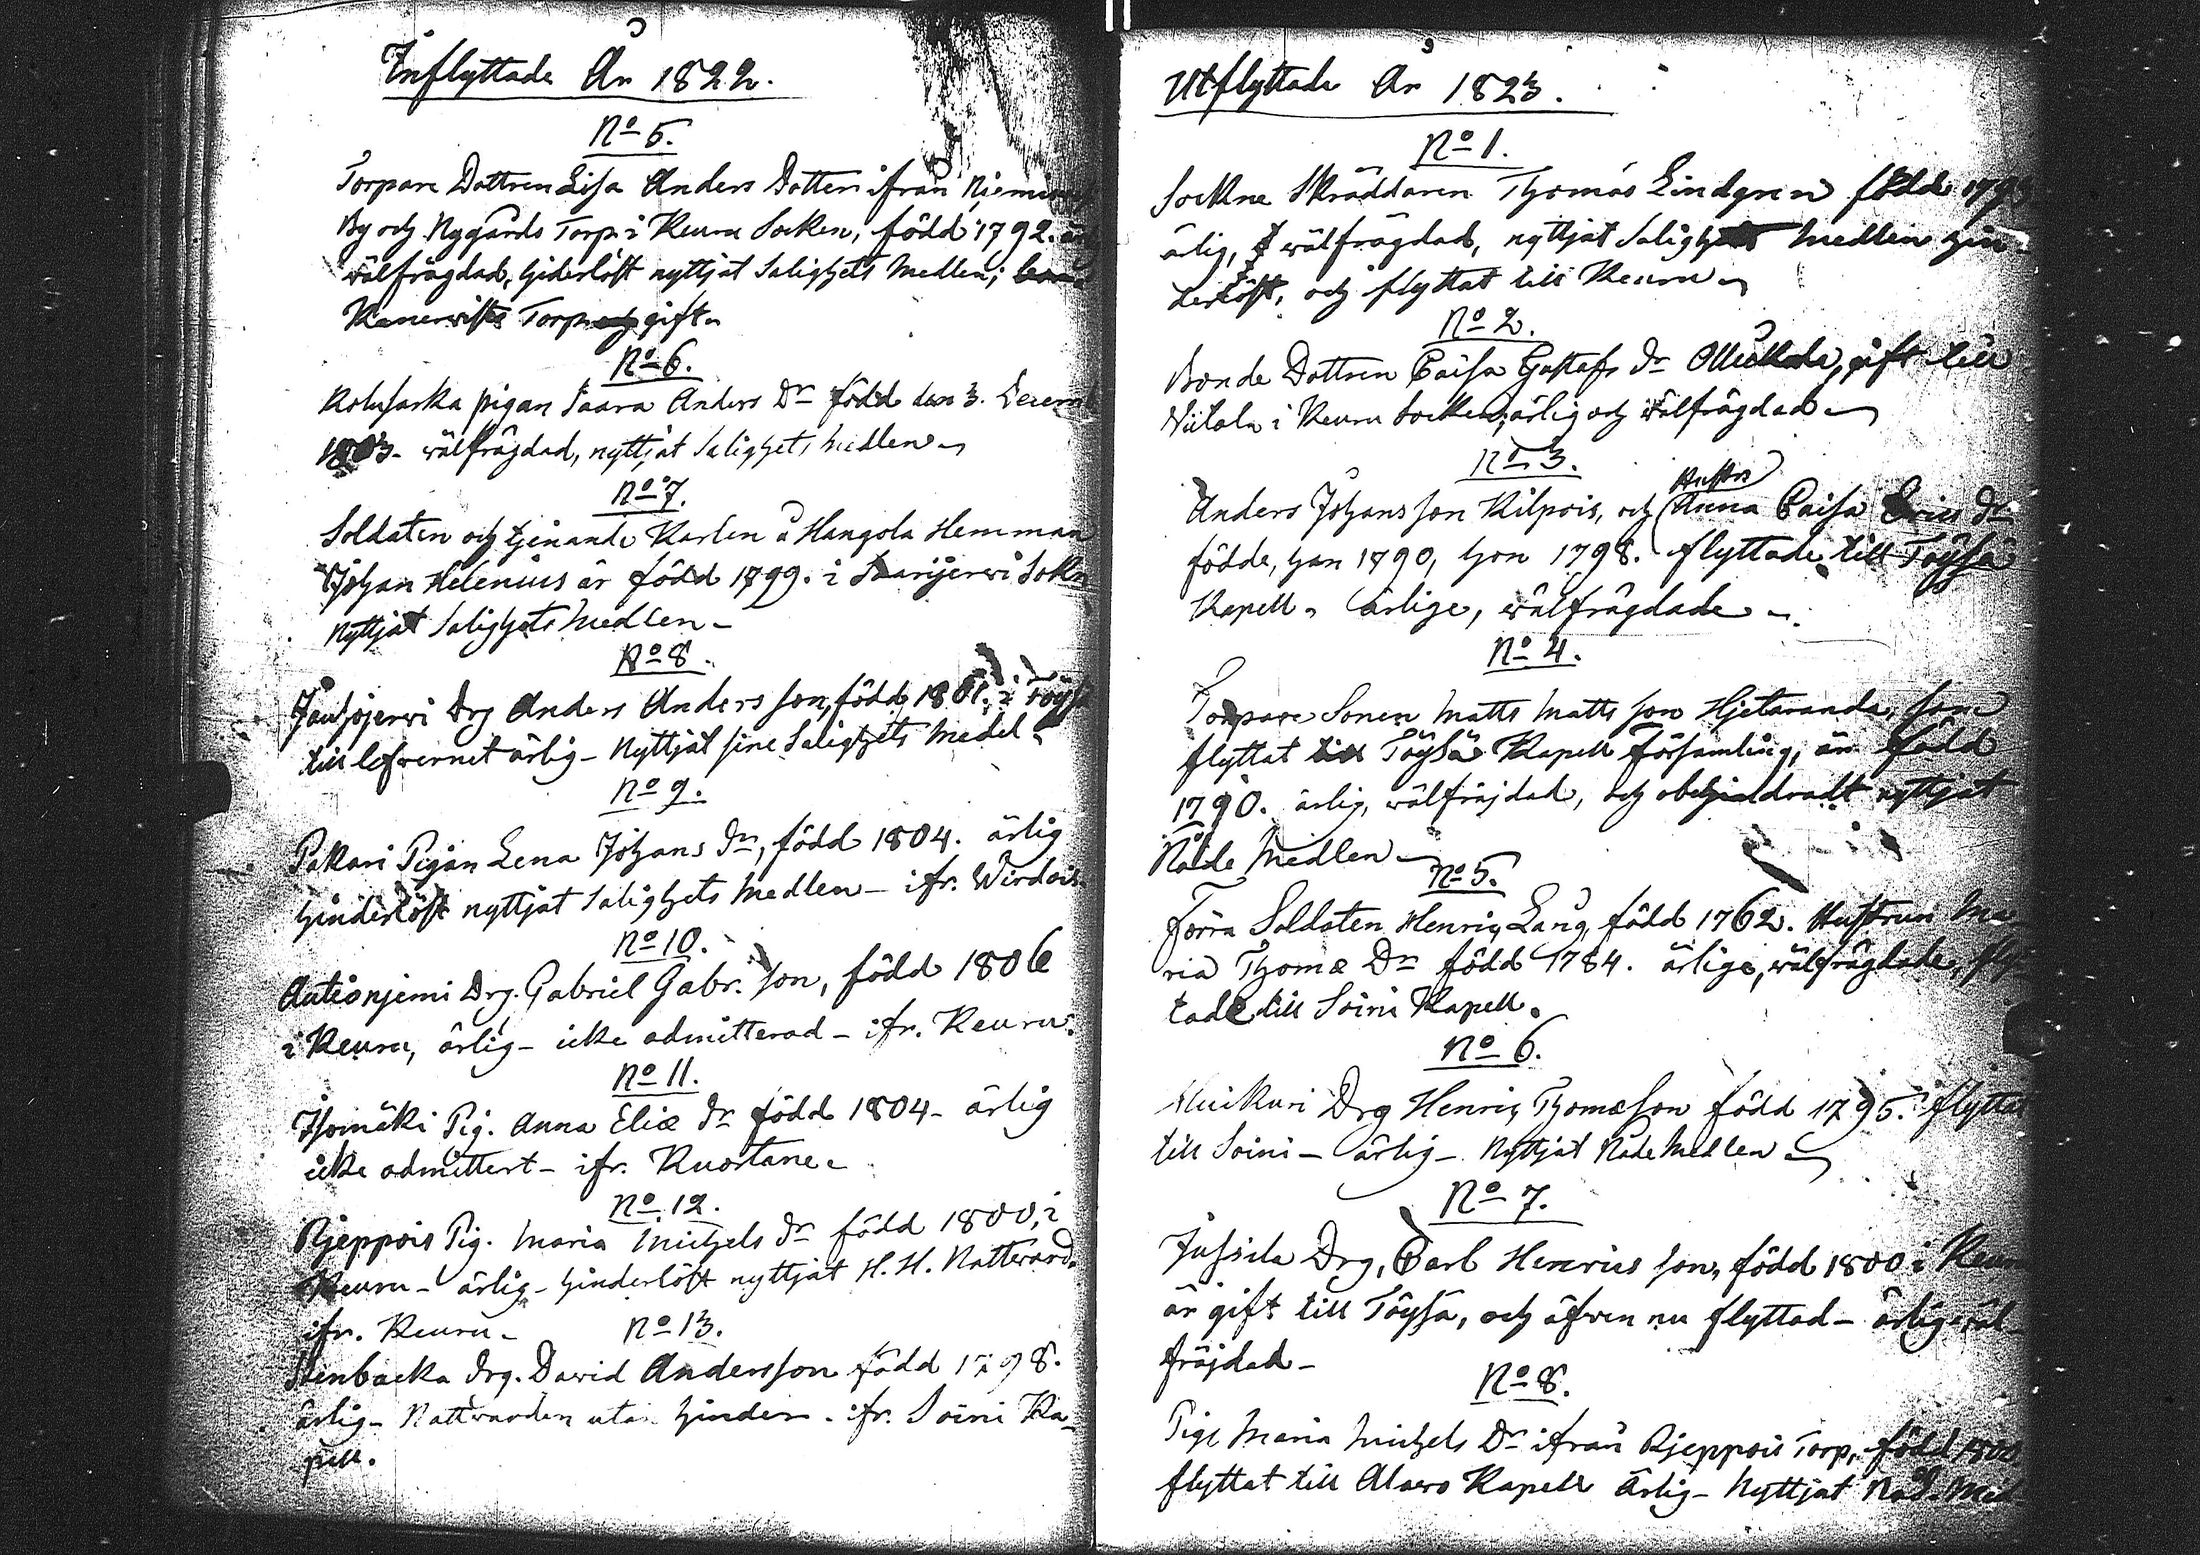 Inflyttade År 1822.
No 5.
Torpare Dottren Lisa Anders Dotter ifrån
By och Nygårds Torp i Keuru Socken, född 1792.
wälfrägdad, hiderlöst nyttjat Salighets Medlen;
Torp gift
No 6.
Kolusarka pigan Saara Anders Dr född den 3. Decemb
1803. wälfrägdad, nyttjat Salighets medlen
No 7.
Soldaten och tjenande Karlen å Hangola Hemman
Johan Helenius är född 1799. i Saarijerwi Sokn
Nyttjat Salighets Medlen
No 8.
Drg Anders Andersson, född 1801. i Töysä
till lefwernet ärlig - Nyttjat sine Salighets Medel
No 9.
Pakari Pigan Lena Johans Dr, född 1804. ärlig
hinderlöst nyttjat Salighets Medlen - ifr. Wirdois
No 10.
Autionjemi Drg. Gabriel Gabr. Son, född 1806
i Keuru, ärlig - icke admitterad - ifr. Keuru.
No 11.
Isomäki Pig. Anna Eliæ Dr född 1804 - ärlig
icke admittert - ifr. Kuortane
No 12.
Rjeppois Pig. Maria Michels Dr född 1800, i
Keuru - ärlig - hinderlöst nyttjat H. H. Nattward.
ifr. Keuru -
No 13.
Stenbacka Drg. David Andersson född 1798.
ärlig - Nattwarden utan hinder - ifr. Soini Ka-
pell.
Utflyttade År 1823.
No 1.
Sockne Skräddaren Thomas Lindgren född
ärlig, wälfrägdad, nyttjat Salighets Medlen hin-
derlöst, och flyttat till Keuru
No 2.
Bonde Dottren Caisa Gustafs Dr Ollikkala, gift till
Niitala i Keuru Socken, ärlig och wälfrägdad
No 3.
Anders Johansson Kilpois, och Hustru Anna Caisa Erics Dr
födde, han 1790, hon 1798. flyttade till Töysä
Kapell, ärlige, wälfrägdade
No 4.
Torpare Sonen Matts Mattsson Hjetaranda, som
flyttat till Töysä Kapell Församling, är född
1790. ärlig, wälfräjdad, och obehindradt nyttjat
Nåde Medlen
No 5.
Förra Soldaten Henric Lång, född 1762. Hustrun Ma-
ria Thomæ Dr född 1784. ärlige, wälfrägdade, fly-
tade till Soini Kapell.
No 6.
Drg Henric Thomæson född 1795. flyttat
till Soini - ärlig - Nyttjat Nåde Medlen
No 7.
Jussila Drg, Carl Henricsson, född 1800 i Keuru
är gift till Töysä, och äfwen nu flyttad - ärlig wäl-
fräjdad -
No 8.
Pige Maria Michels Dr ifrån Rjeppois Torp, född 1800
flyttat till Alawo Kapell ärlig - Nyttjat Nåde Med-